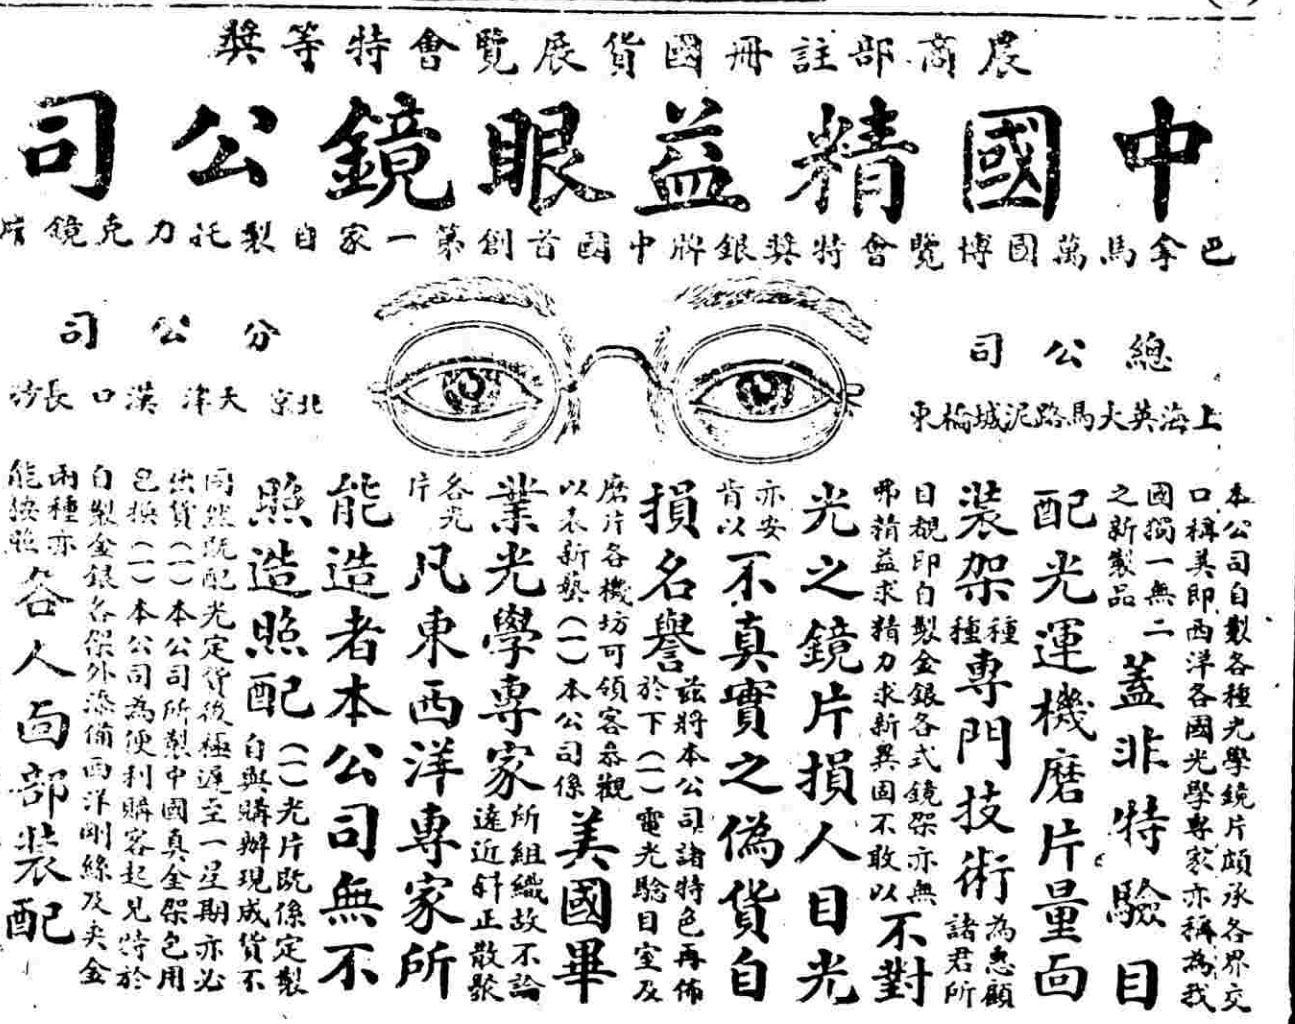 農商部註冊國貨展覽會特等獎
中國精益眼鏡公司
巴拿馬萬國博覽會特獎銀牌中國首創第一家自製托力克鏡片
總公司
上海英大馬路泥城橋東
分公司
北京 天津 漢口 長沙
本公司自製各種光學鏡片頗承各界交
口稱美即西洋各國光學專家亦稱為我
國獨一無二
之新製品
蓋非特驗目
配光運機磨片量面
裝架種種專門技術為惠顧
諸君所
目覩印自製金銀各式鏡架亦無
弗精益求精力求新異固不敢以
不對
光之鏡片損人目光
亦安
肯以
不真實之偽貨自
損名譽茲將本公司諸特色再佈
於下(一)電光驗目室及
磨片各機坊可領客叅觀
以表新藝(一)本公司係
美國畢
業光學專家所組織故不論
遠近斜正散聚
各光
片
凡東西洋專家所
能造者本公司無不
照造照配(一)光片既係定製
自與購辦現成貨不
同然既配光定貨後極遲至一星期亦必
出貨(一)本公司所製中國真金架包用
包換(一)本公司為便利購客起見特於
自製金銀各架外添備西洋剛絲及夾金
兩種亦
能按照
各人面部裝配